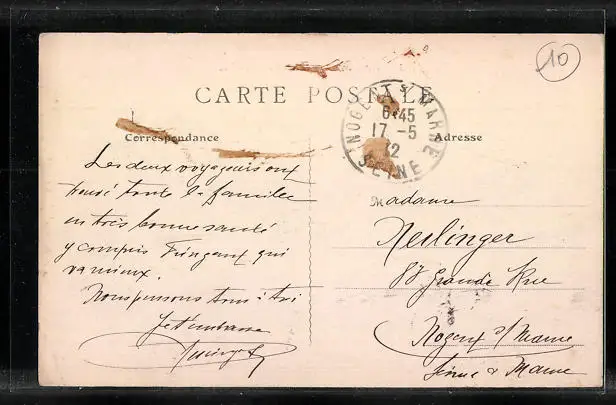 10
CARTE POSTALE
NOGENT S/ MARNE
6 45
17 - 5
12
SEINE
Correspondance
Adresse
Les deux voyageurs ont
trouvé toute la famille
en très bonne santé
y compris qui
va mieux.
Nous pensons tous à toi
Je t'embrasse
Madame
Neslinger
87 Grande Rue
Nogent s/ Marne
Seine &